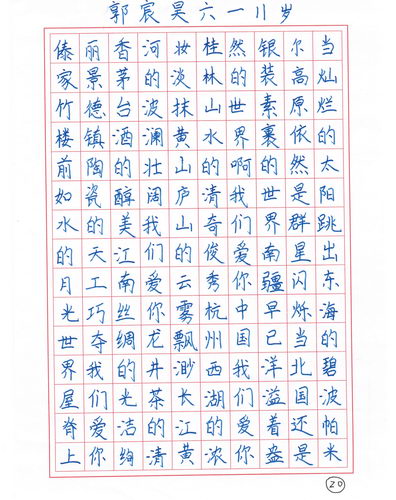 郭宸昊六一11岁
当灿烂的太阳跳出东海的碧波帕米
尔高原依然是群星闪烁当北国还是
银装素裹的世界南疆早已洋溢着盎
然的世界啊我们爱你中国我们爱你
桂林山水的清奇俊秀杭州西湖的浓
妆淡抹黄山庐山云雾飘渺长江黄
河的波澜壮阔我们爱你龙井茶的清
香茅台酒的醇美江南丝绸的光洁绚
丽景德镇陶瓷的天工巧夺我们爱你
傣家竹楼前如水的月光世界屋脊上
20